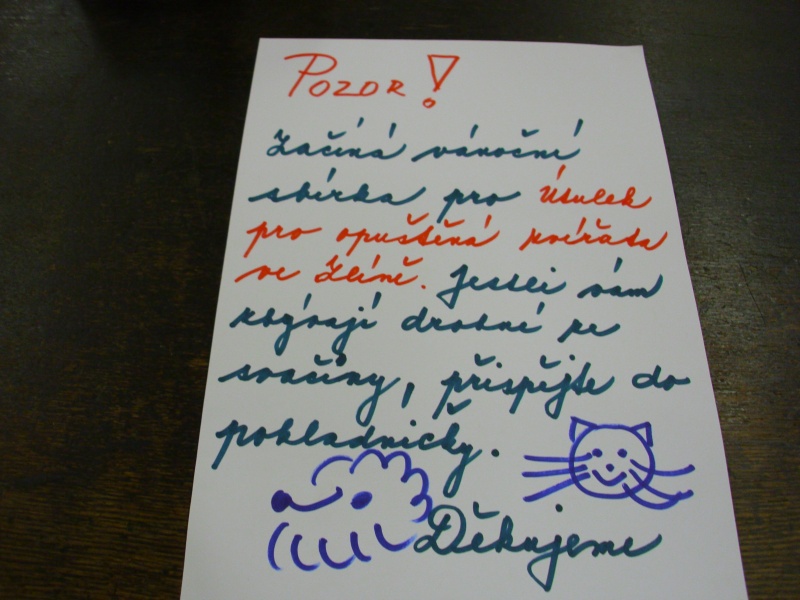 Pozor!
Začíná vánoční
sbírka pro Útulek
pro opuštěná zvířata
ve Zlíně. Jestli vám
zbývají drobné ze
svačiny, přispějte do
pohladničky.
Děkujeme